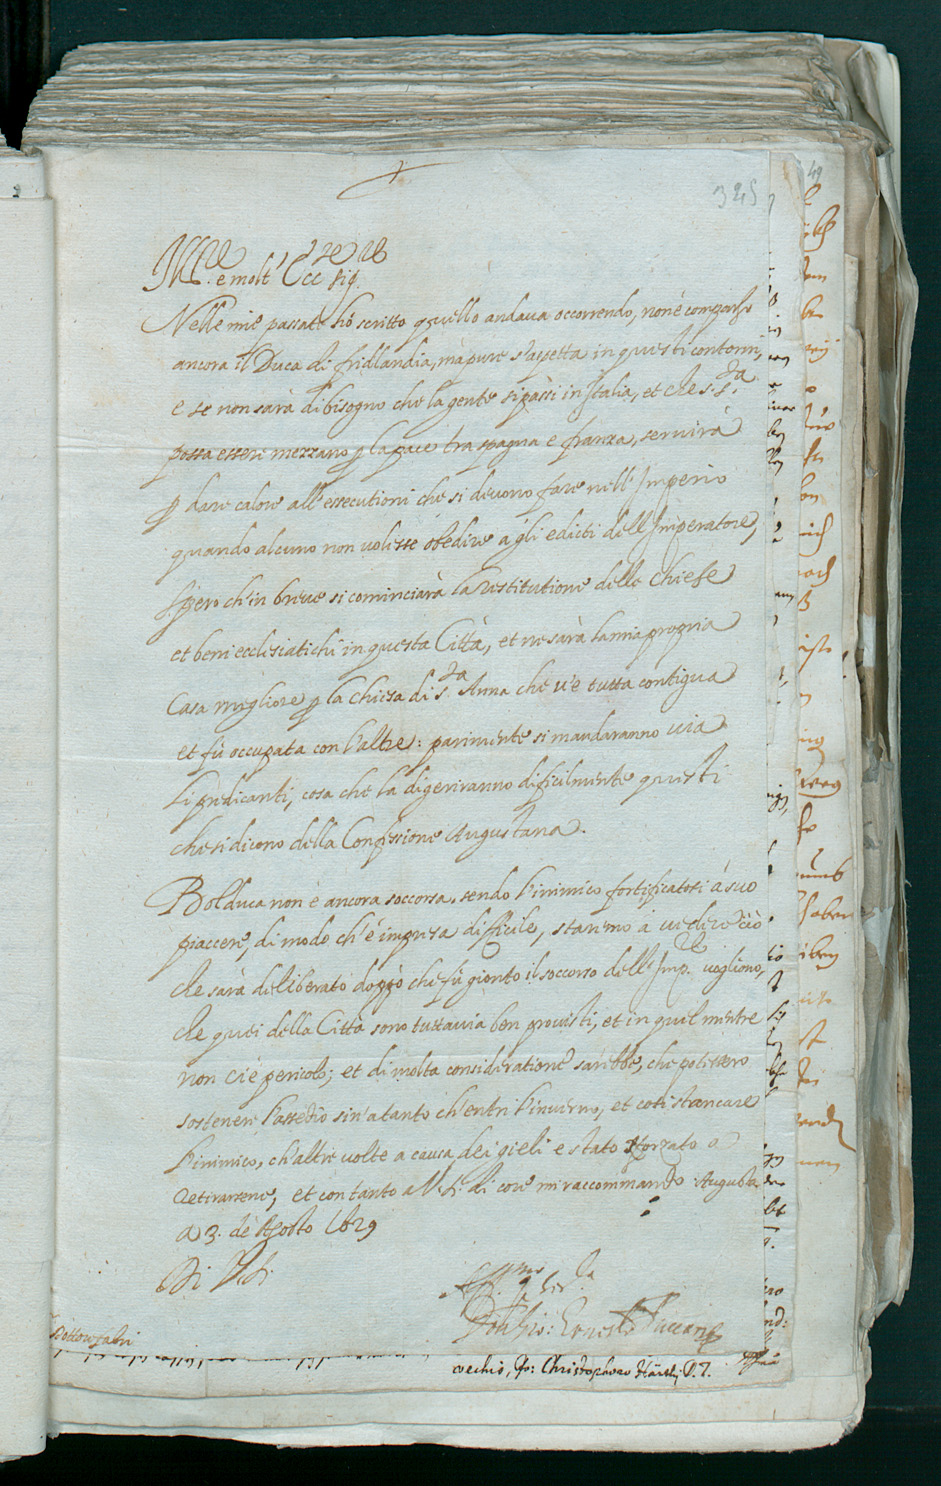 345
Ill.re e molt' Ecc.te Sig.re
Nelle mie passate hò scritto quello andava occorrendo, non è comparso
ancora il Duca di fridlandia, mà pure s'aspetta in questi contorni,
e se non sarà di bisogno che la gente si passi in Italia, et che S. S.tà
possa essere mezzano p la pace tra spagna e franza, servirà
p dare calore all'essecutioni che si devono fare nell'Imperio
quando alcuno non volesse obedire à gli edicti dell'Imperatore,
spero ch'in breve si cominciarà la restitutione delle Chiese
et beni ecclesiatichi in questa Città, et ne sarà la mia propria
Casa migliore p la Chiesa di S.ta Anna che v'è tutta contigua
et fù occupata con l'altre: parimente si mandaranno via
li predicanti, cosa che la digeriranno dificilmente questi
che si dicono della Confessione Augustana.
Bolduca non è ancora soccorsa, sendo l'inimico fortificatosi à suo
piaccere, di modo ch'è impresa difficile, staremo à vedere ciò
che sarà deliberato doppò che fù gionto il soccorso dell'Imp.re vogliono,
che quei della Città sono tuttavia ben provisti, et in quel mentre
non ci è pericolo; et di molta consideratione sarebbe, che potessero
sostener l'assedio sin'a tanto ch'entri l'inverno, et così stancare
l'inimico, ch'altre volte a causa dei gieli e stato sforzato a
retirarsene, et con tanto a V. S. di core mi raccommando Augusta
a 3. de Agosto 1629
Di V. S.
Aff.mo
Gio: Ernesto
vecchio, Jo: Christophoro
49